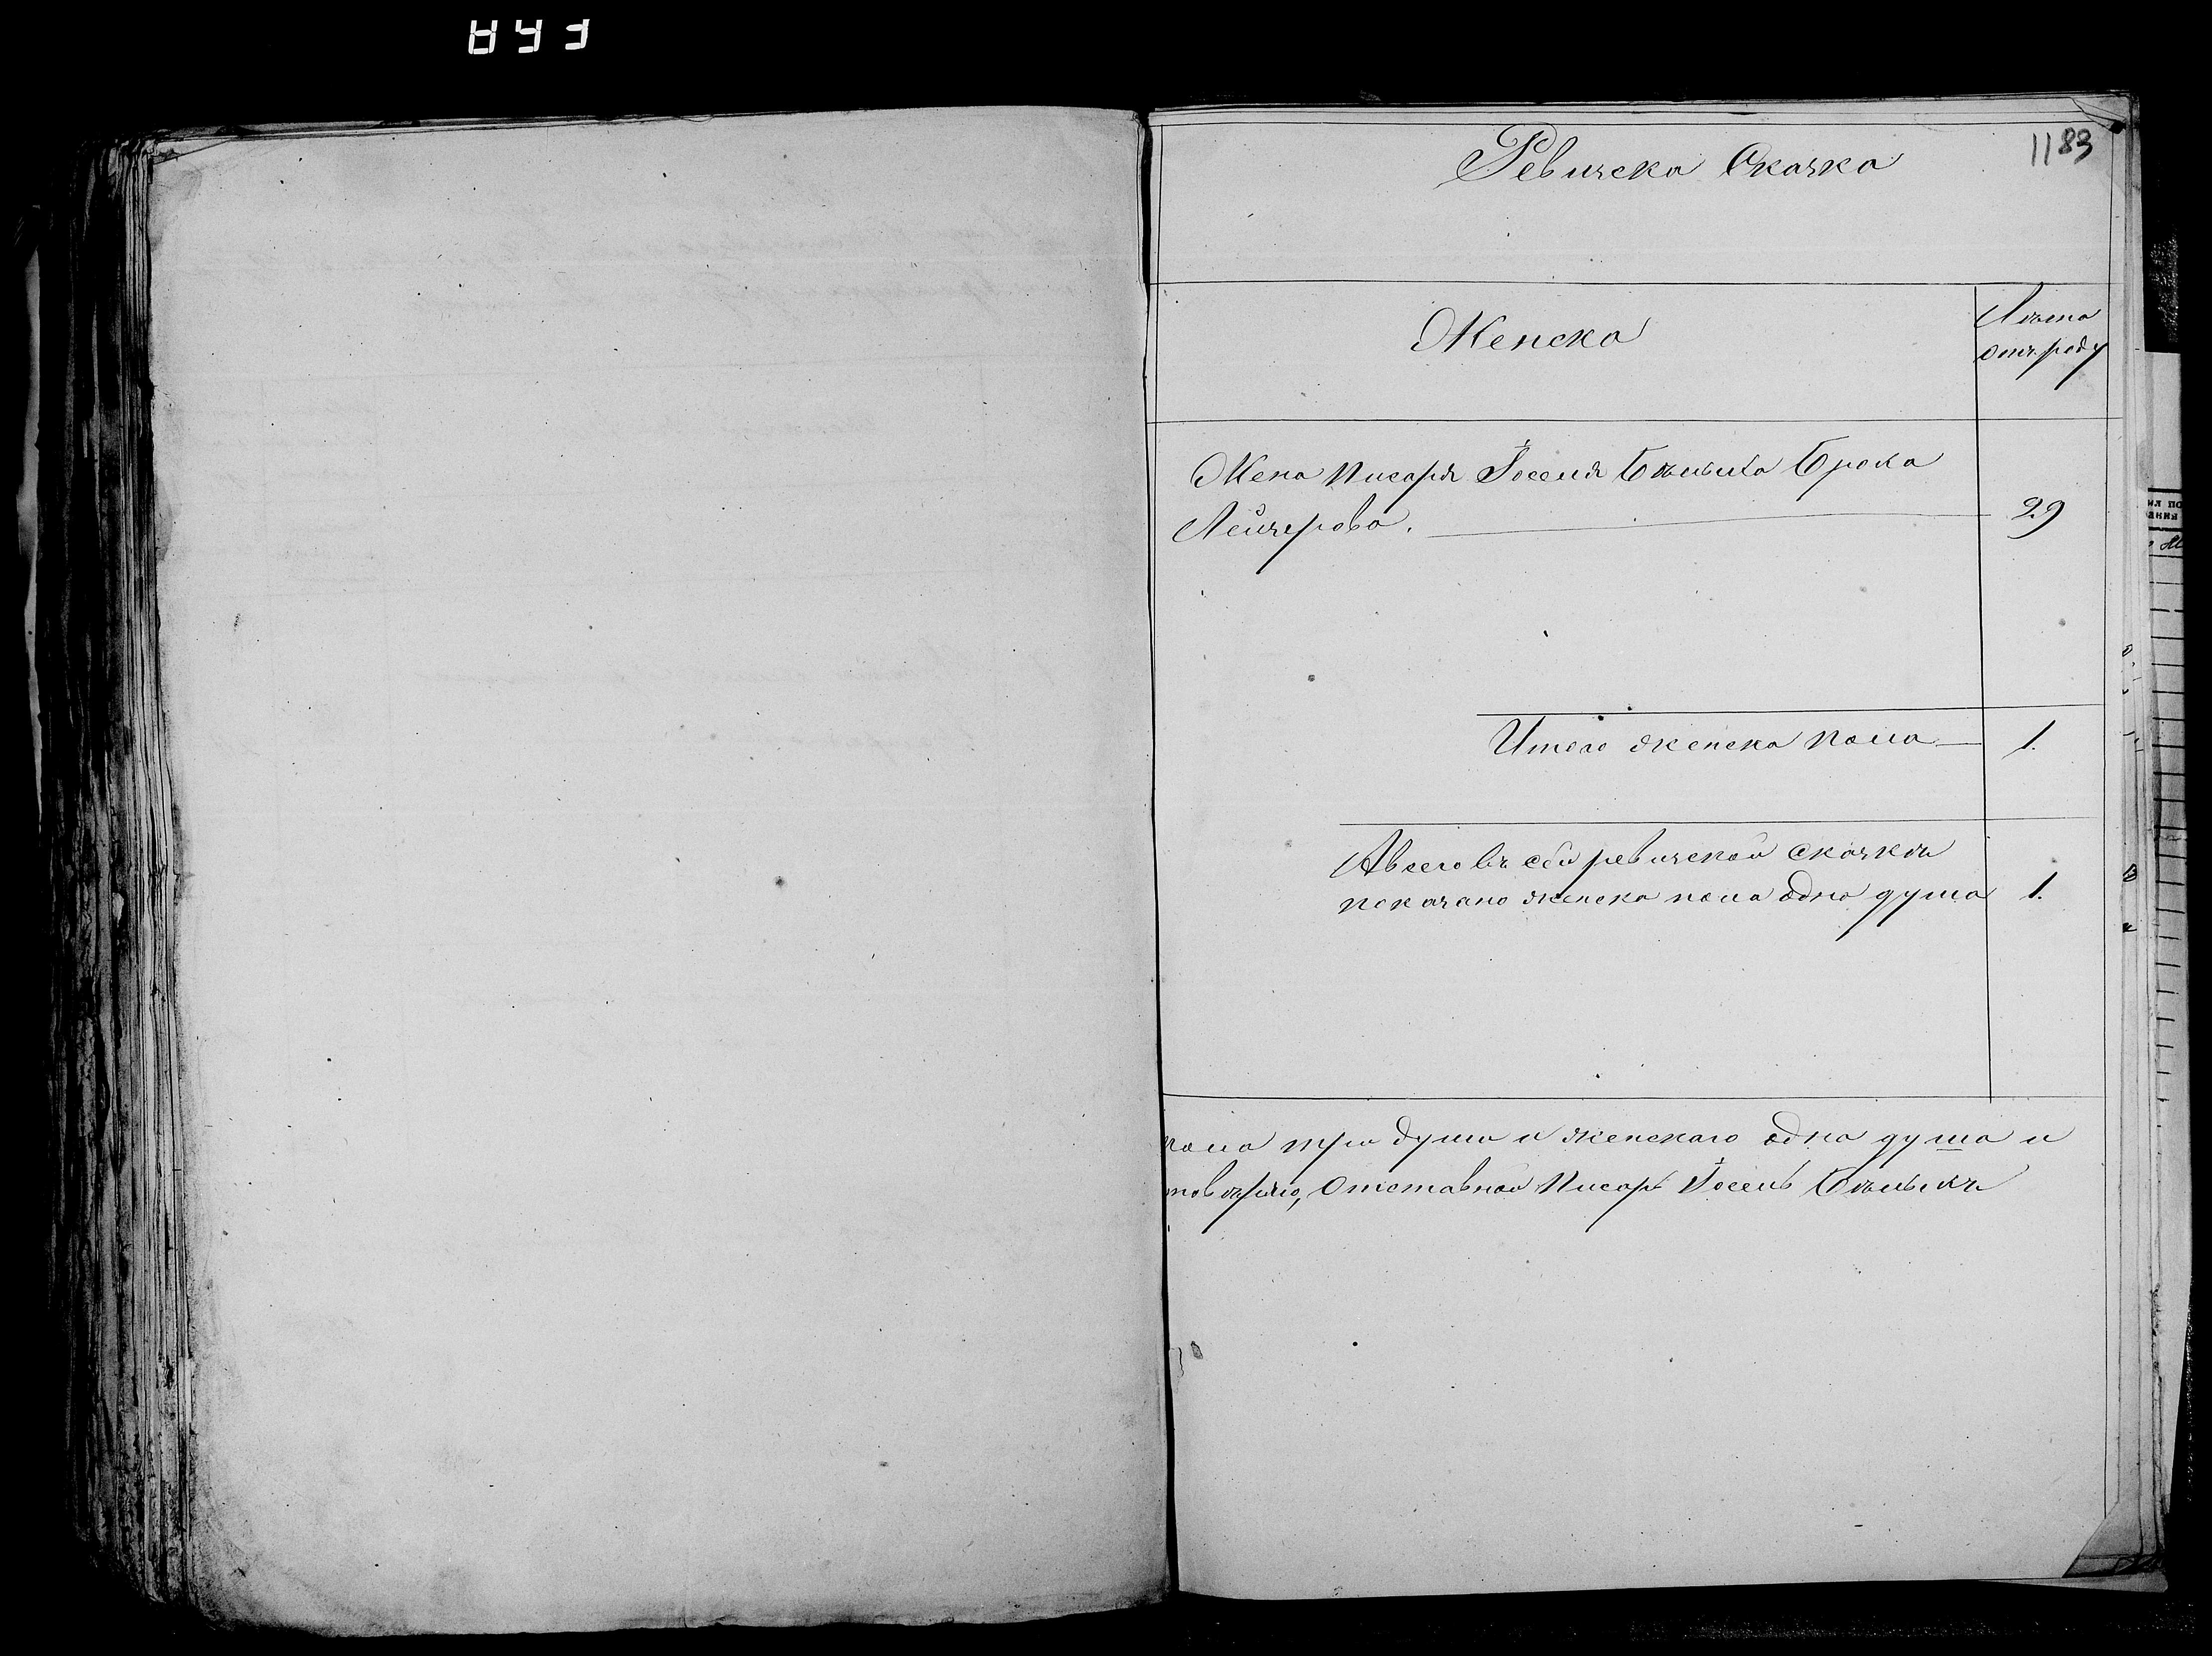 1183
Ревизска Сказка
Женска
Лѣта
отъ роду
Жена Писаря Іоселя Бѣлыка Брока
Лейзерова. 29
Итого женска пола 1.
А всего въ сей ревизской сказкѣ
показано женска пола одна душа 1.
пола три души и женскаго одна душа и
Отставной Писарь Іосель Бѣлыкъ